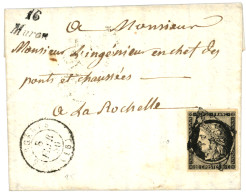 16
Muron
A Monsieur
Monsieur L'ingénieur en chef des
ponts et chaussées
A La Rochelle